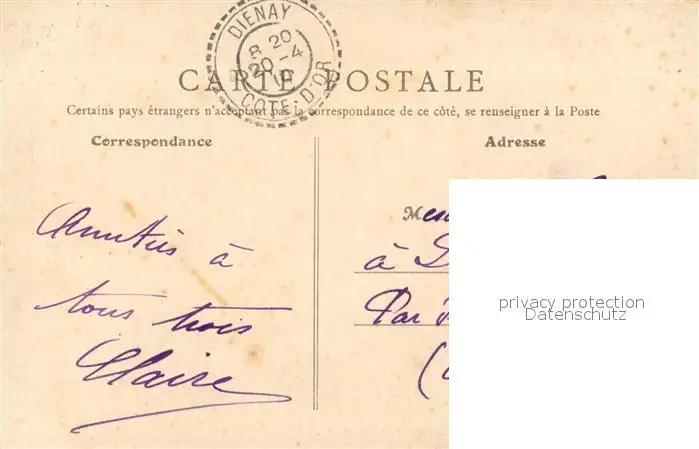 DIENAY
8 20
20-4
10
COTE-D'OR
CARTE POSTALE
Certains pays étrangers n'acceptant pas la correspondance de ce côté, se renseigner à la Poste
Correspondance
Adresse
Amitiés à
tous trois
Claire
à
Par
(
privacy protection
Datenschutz